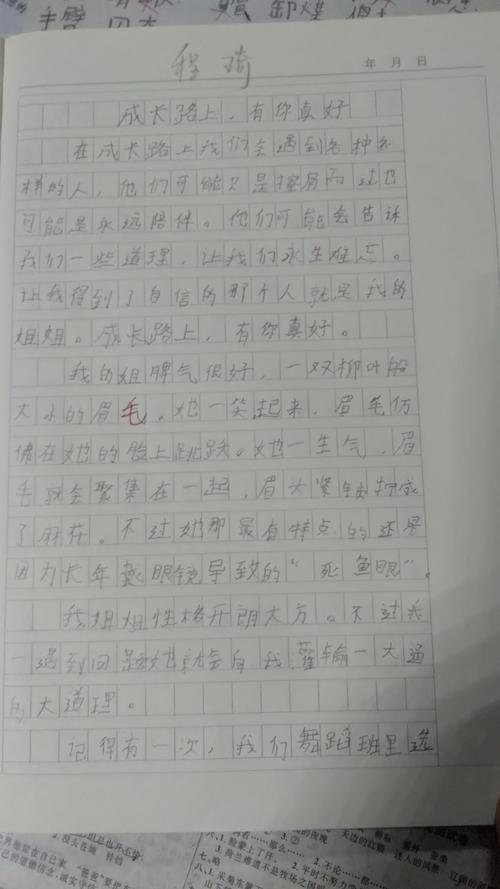 手臂
卸煤
程琦
年 月 日
成长路上，有你真好
在成长路上我们会遇到各种各
样的人，他们可能只是擦肩而过也
可能是永远陪伴。他们可能会告诉
我们一些道理，让我们永生难忘。
让我得到了自信的那个人就是我的
姐姐。成长路上，有你真好。
我的姐脾气很好，一双柳叶般
大小的眉毛，她一笑起来，眉毛仿
佛在她的脸上跳跃。她一生气，眉
毛就会聚集在一起，眉大紧锁拧成
了麻花。不过她那最有特点的还是
因为长年戴眼镜导致的“死鱼眼”。
我姐姐性格开朗大方。不过我
一遇到问题她就会向我灌输一大通
的大道理。
记得有一次，我们舞蹈班里选